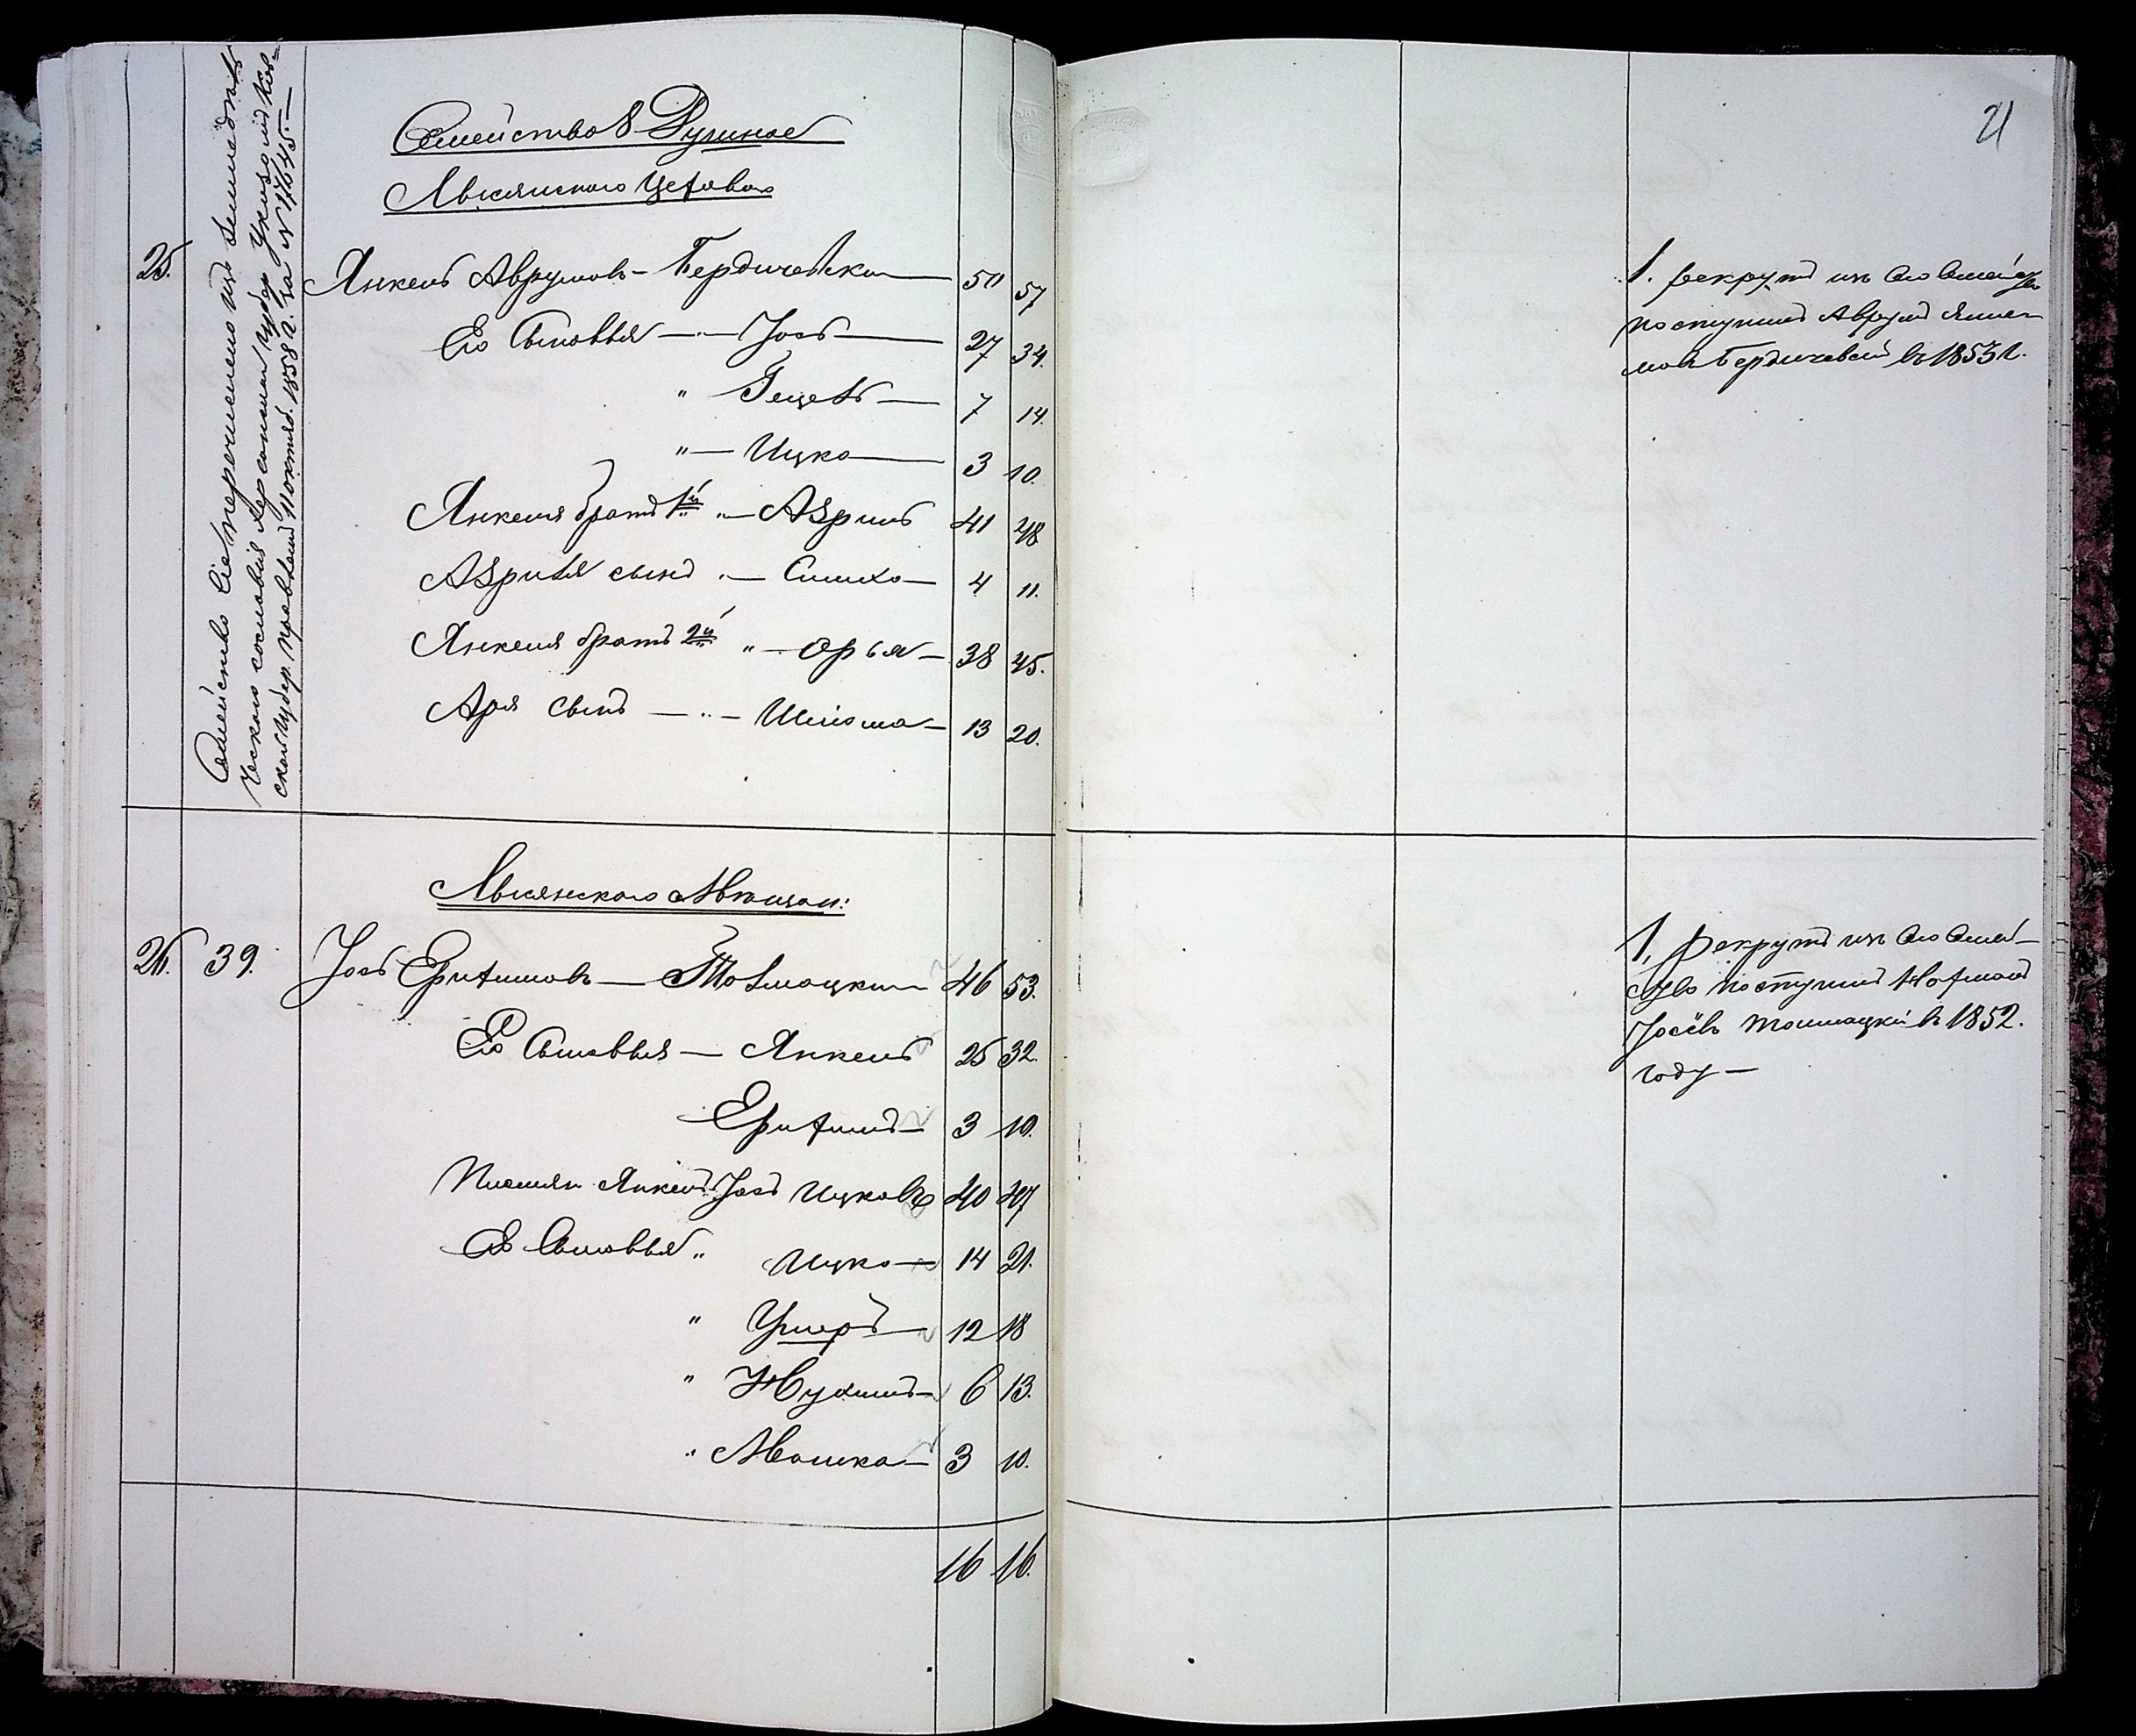 21
Семейство 8 Душное
Лысянского
25.
Семейство Сие перечислено изъ Земледѣль
ческаго сословія Херсонской Губер Указомъ Кіев-
ской Губер. Правленія 11 октяб. 1858 г. за № 17645.—
Янкель Аврумовъ — Бердичевскій — 50 57
Его Сыновья — " — Іось — 27 34.
" Гецель — 7 14.
" — Ицко — 3 10.
Янкеля братъ 1й " — Азриль 41 48
Азриля сынъ " — Симха — 4 11.
Янкеля братъ 2й " — Орья — 38 45.
Аря сынъ — " — Шлiома — 13 20.
1. рекрутъ изъ сего Семейства
поступилъ Аврумъ Янке-
левъ Бердичевскій въ 1853 г.
Лысянского Мѣщан:
26. 39. Іось Фроимовъ — Толмацкій 46 53.
Его Сыновья — Янкель 25 32.
Фроимъ — 3 10.
Янкель Іось Ицковъ 40 47
Его Сыновья " Ицко — 14 21.
" Ушеръ — 12 18
" Нухимъ — 6 13.
" Мошко — 3 10.
1, рекрутъ изъ сего Семей-
ства поступилъ
Іосевъ Толмацкій въ 1852.
году —
16 16.